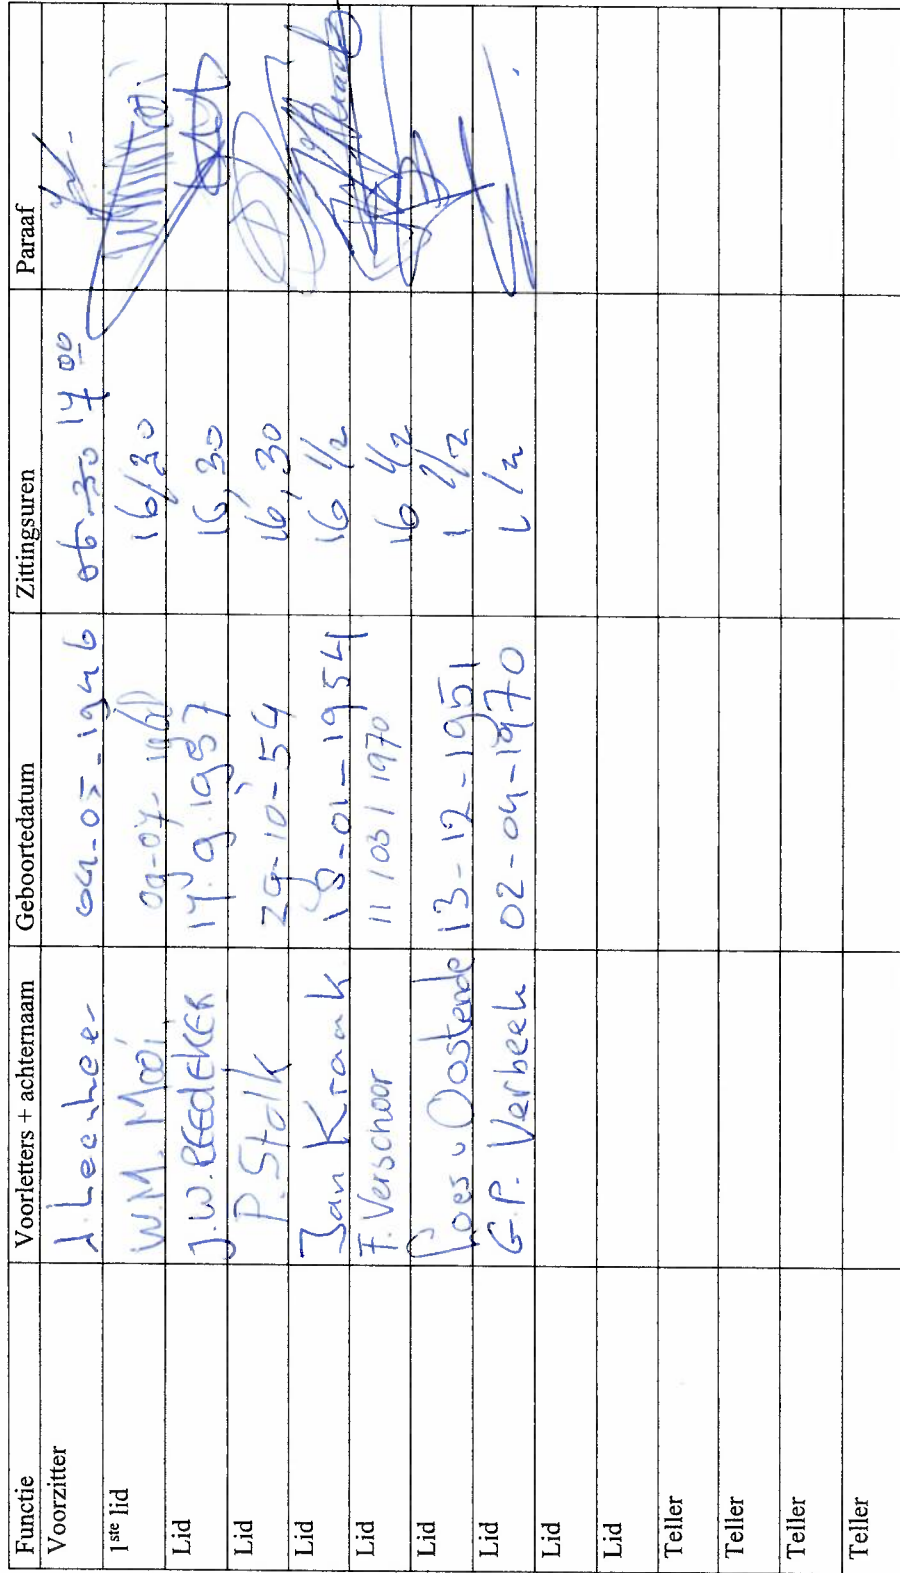 Functie Voorletters + achternaam Geboortedatum Zittingsuren Paraaf
Voorzitter 04-05-1946 06-30 14 00
1ste lid W.M. Mooi 09-07- 16/30
Lid J.W. REEdEKER 17.9.1937 16,30
Lid P. Stolk 29-10-54 16,30
Lid Jan Kraak 18-01-1954 16 1/2
Lid F. Verschoor 11/03/1970 16 1/2
Lid Loes v Oostende 13-12-1951 1 1/2
Lid G.P. Verbeek 02-04-1970 1/2
Lid
Lid
Teller
Teller
Teller
Teller